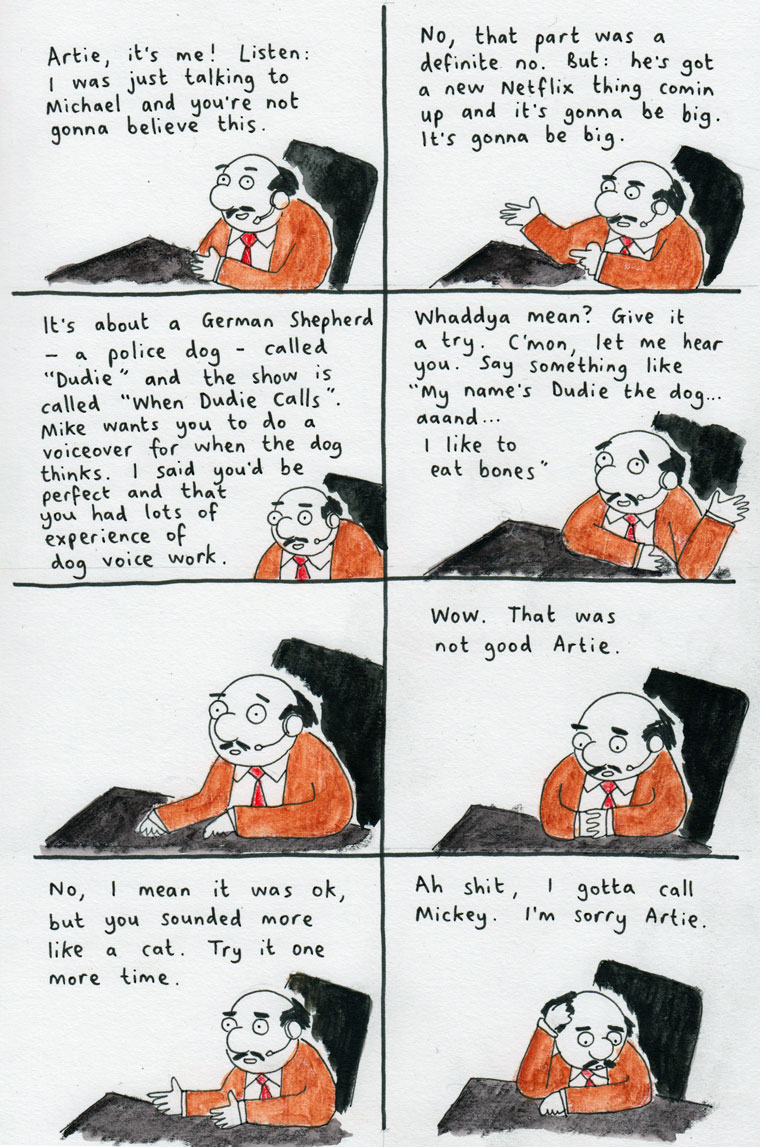 Artie, it's me! Listen:
I was just talking to
Michael and you're not
gonna believe this.
No, that part was a
definite no. But: he's got
a new Netflix thing comin
up and it's gonna be big.
It's gonna be big.
It's about a German Shepherd
– a police dog – called
"Dudie" and the show is
called "When Dudie Calls".
Mike wants you to do a
voiceover for when the dog
thinks. I said you'd be
perfect and that
you had lots of
experience of
dog voice work.
Whaddya mean? Give it
a try. C'mon, let me hear
you. Say something like
"My name's Dudie the dog...
aaand...
I like to
eat bones"
Wow. That was
not good Artie.
No, I mean it was ok,
but you sounded more
like a cat. Try it one
more time.
Ah shit, I gotta call
Mickey. I'm sorry Artie.